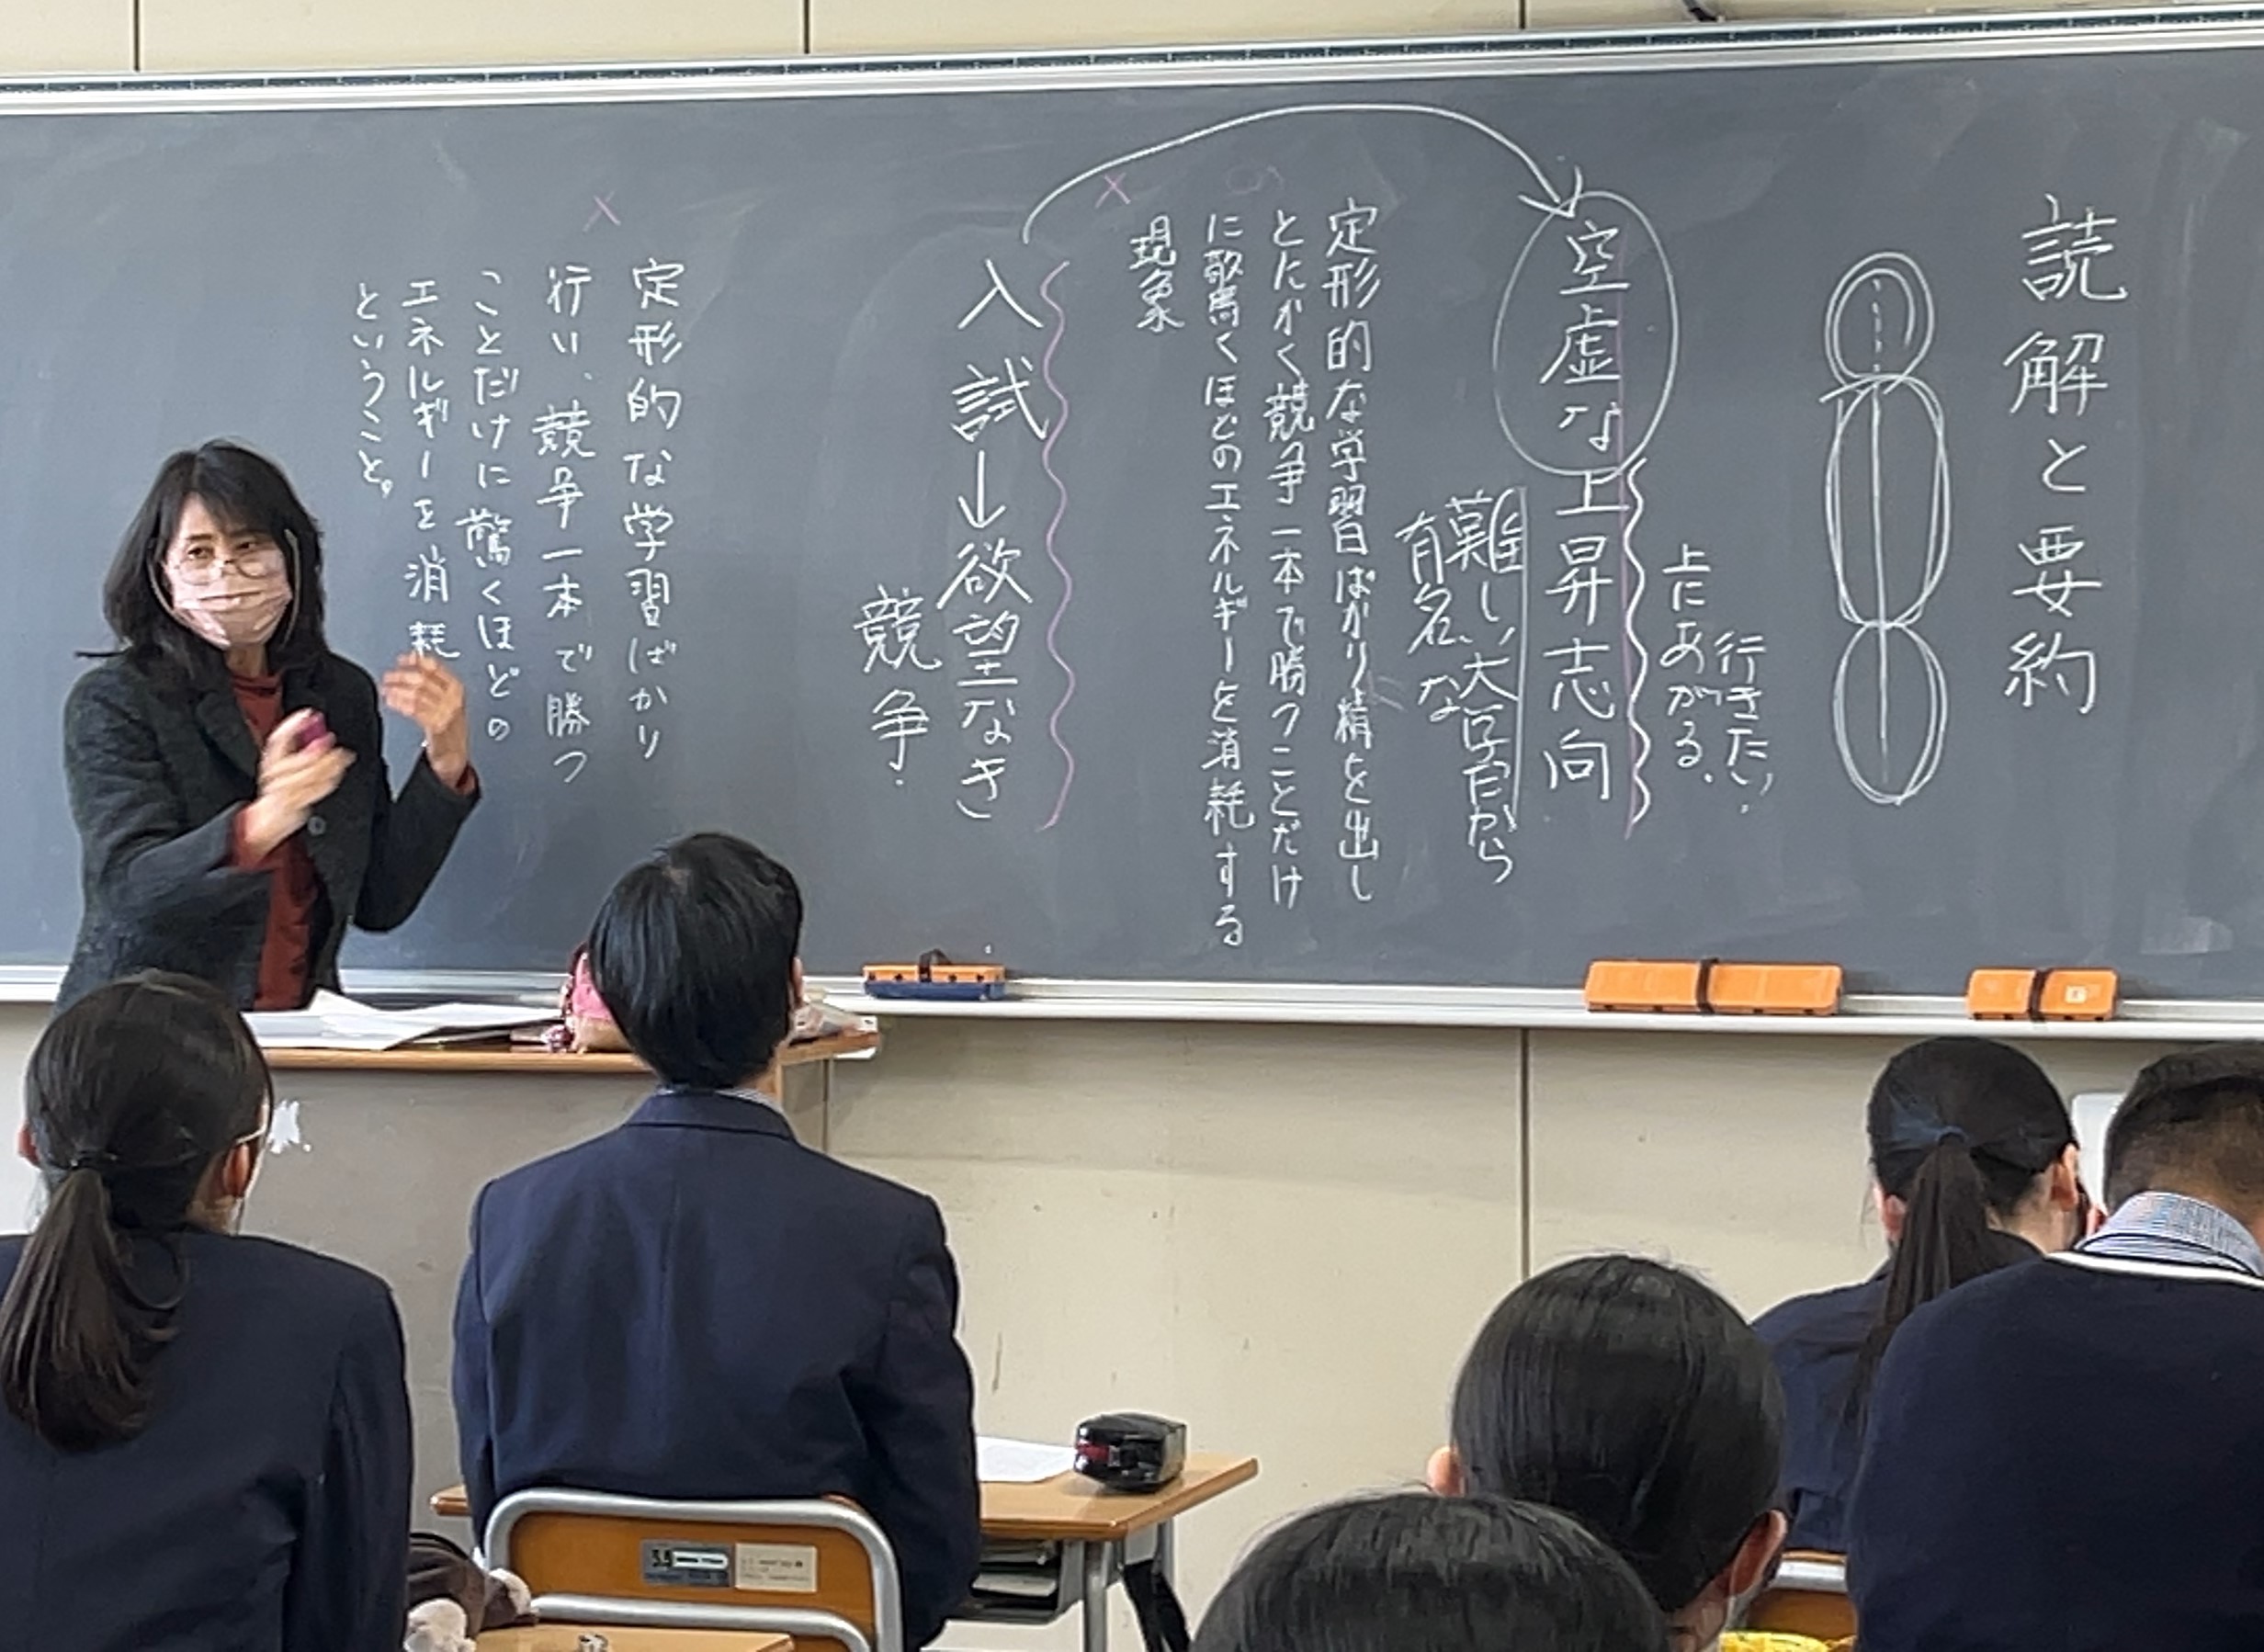 読解と要約
行きたい。
上にあがる。
空虚な上昇志向
難しい大学だから
有名な
定形的な学習ばかり精を出し
とにかく競争一本で勝つことだけ
に驚くほどのエネルギーを消耗する
現象
入試→欲望なき
競争.
定形的な学習ばかり
行い、競争一本で勝つ
ことだけに驚くほどの
エネルギーを消耗
ということ。